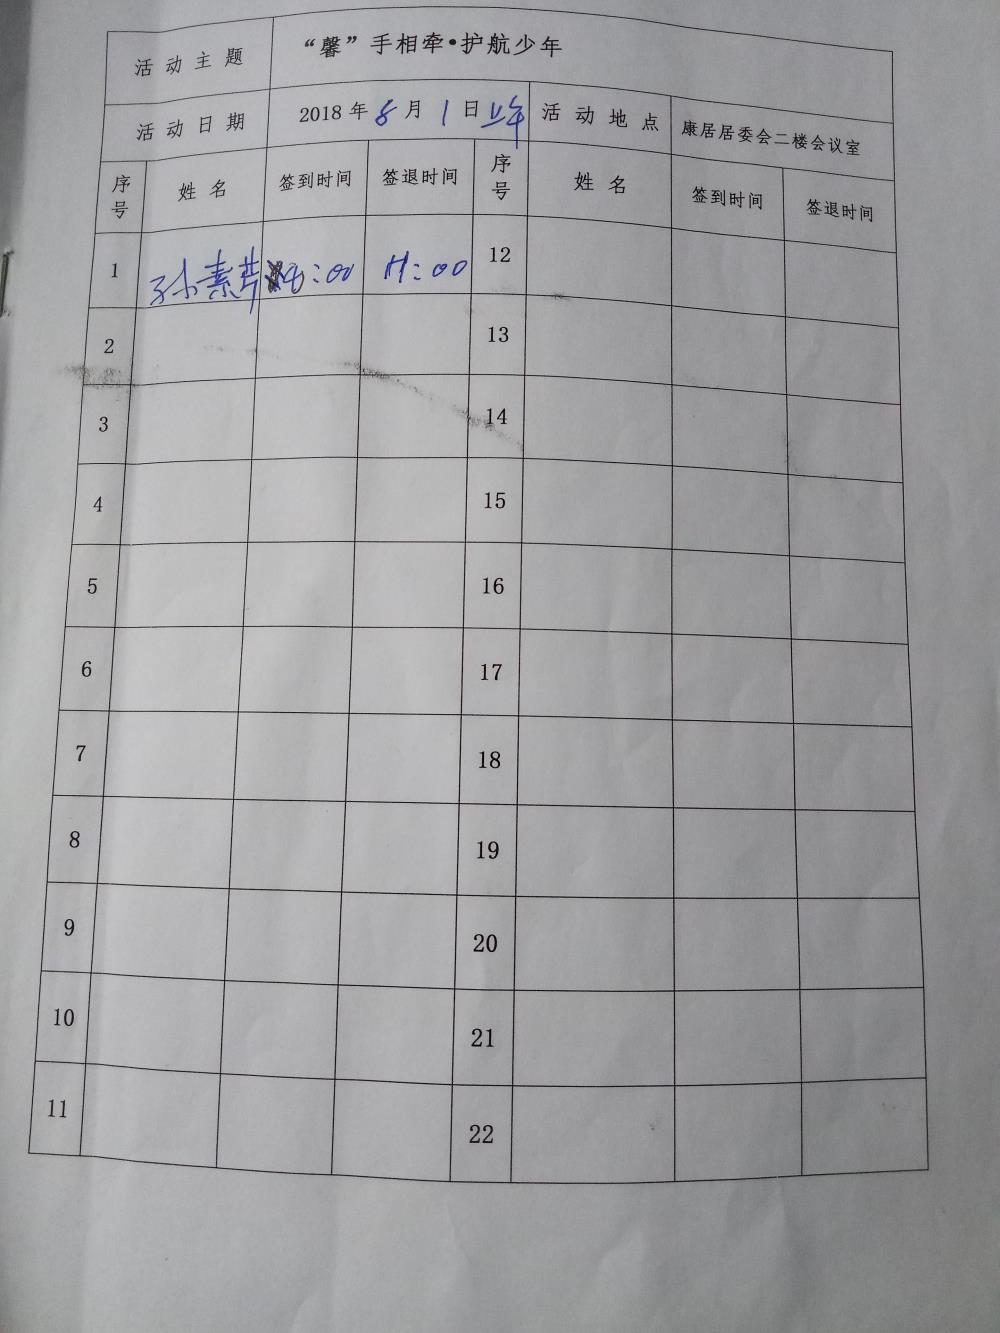 活动主题 “馨”手相牵•护航少年
活动日期 2018年8月1日上午 活动地点 康居居委会二楼会议室
序号 姓名 签到时间 签退时间 序号 姓名 签到时间 签退时间
1 孙素芳 :00 11:00 12
2 13
3 14
4 15
5 16
6 17
7 18
8 19
9 20
10 21
11 22